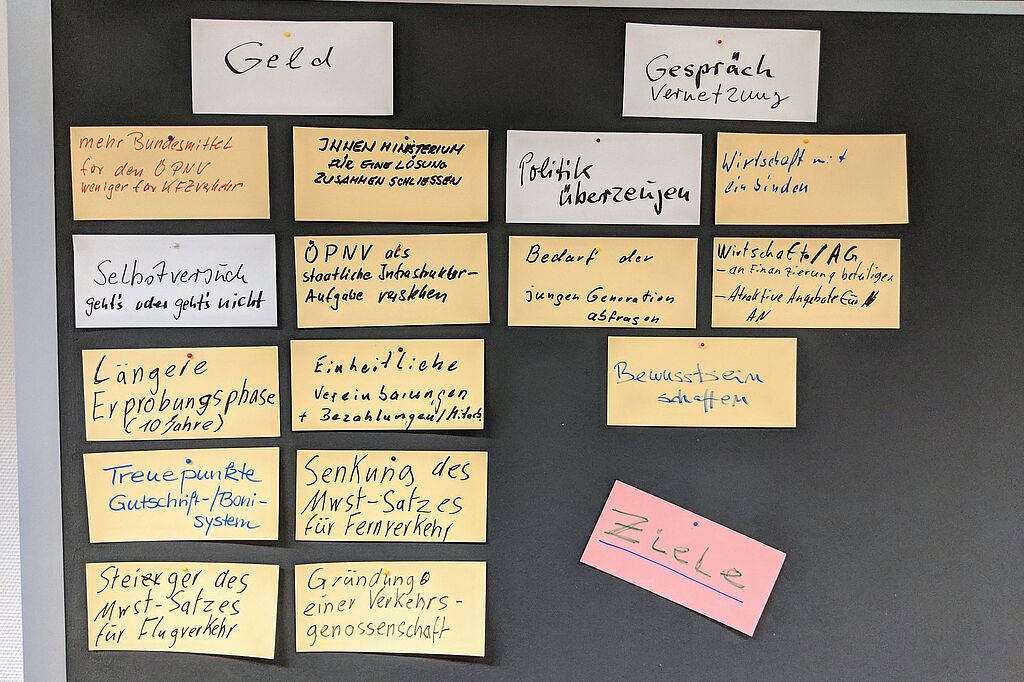 Geld
Gespräch
Vernetzung
mehr Bundesmittel
für den ÖPNV
weniger für KFZverkehr
INNENMINISTERIUM
FÜR EINE LÖSUNG
ZUSAMMENSCHLIESSEN
Politik
überzeugen
Wirtschaft mit
einbinden
Selbstversuch
geht's oder geht's nicht
ÖPNV als
staatliche Infrastruktur-
Aufgabe verstehen
Bedarf der
jungen Generation
abfragen
Wirtschaft/AG
- an Finanzierung beteiligen
- Atraktive Angebote für
AN
Längere
Erprobungsphase
(10 Jahre)
Einheitliche
Vereinbarungen
+ Bezahlungen/
Bewusstsein
schaffen
Treuepunkte
Gutschrift-/Boni-
system
Senkung des
Mwst-Satzes
für Fernverkehr
Ziele
des
Mwst-Satzes
für Flugverkehr
Gründung
einer Verkehrs-
genossenschaft